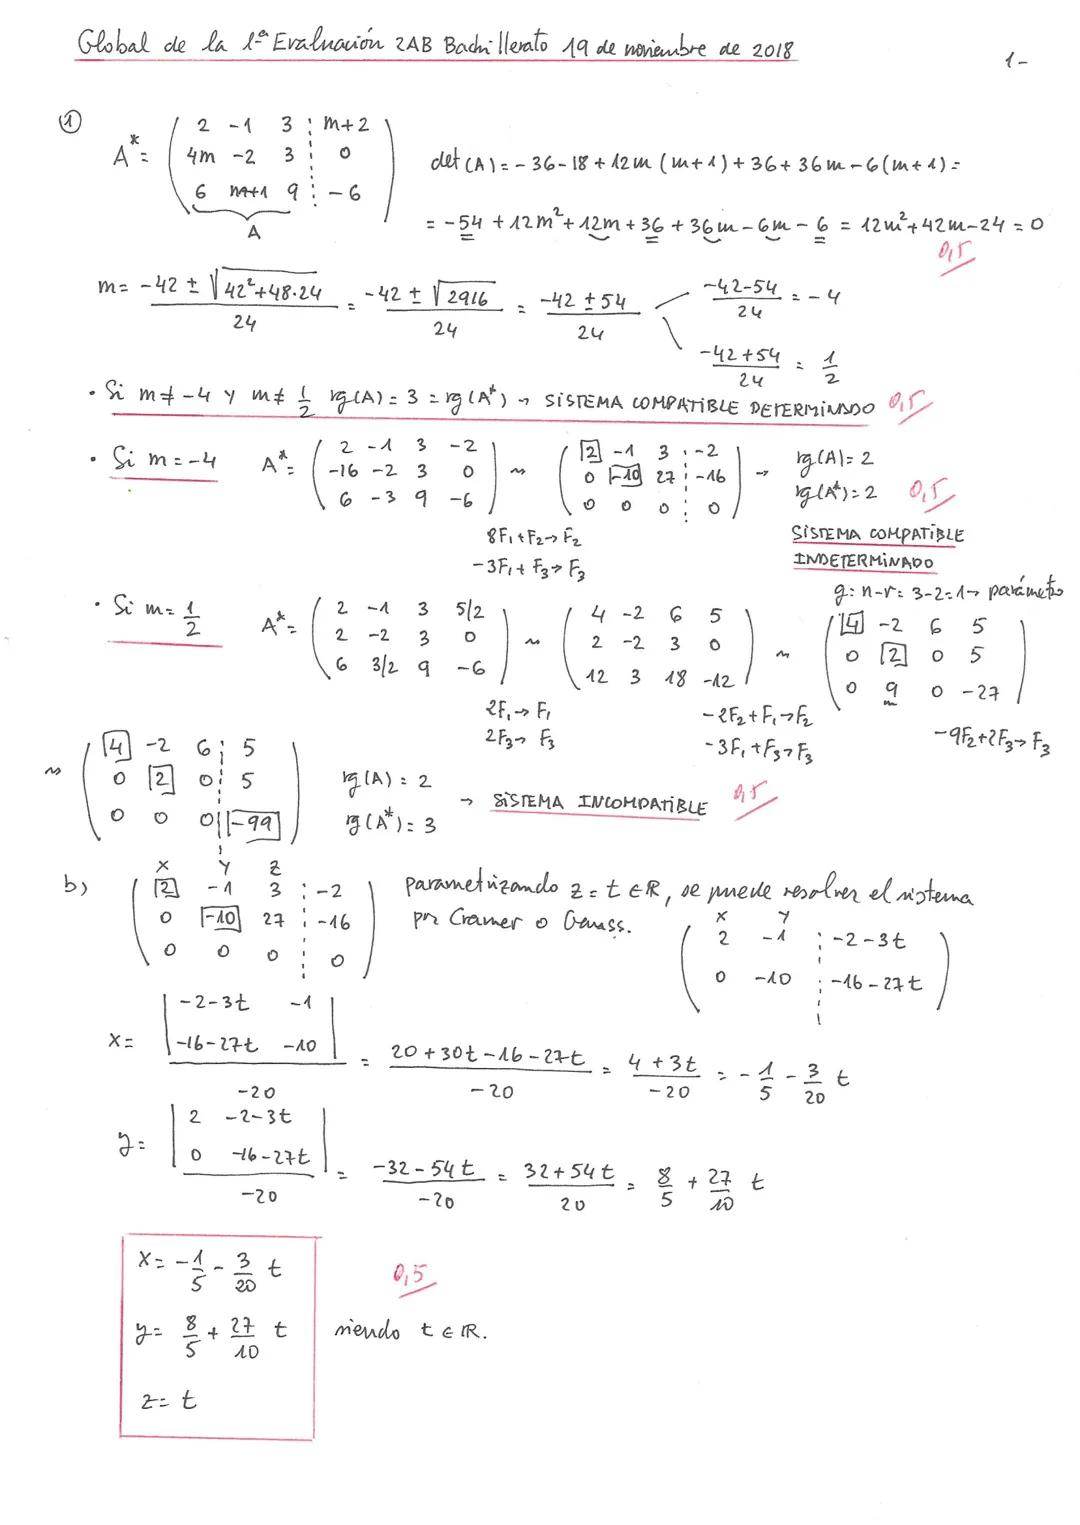 Global de la 1ª Evaluación 2AB Bachillerato 19 de noviembre de 2018
1-
① A* = ( 2 -1 3 ┊ m+2
4m -2 3 ┊ 0
6 m+1 9 ┊ -6 )
A
det(A) = -36-18+12m(m+1)+36+36m-6(m+1) =
= -54+12m²+12m+36+36m-6m-6 = 12m²+42m-24 = 0
0,5
m = (-42 ± √(42²+48·24))/24 = (-42 ± √2916)/24 = (-42 ± 54)/24
(-42-54)/24 = -4
(-42+54)/24 = 1/2
· Si m ≠ -4 y m ≠ 1/2 rg(A) = 3 = rg(A*) → SISTEMA COMPATIBLE DETERMINADO 0,5
· Si m = -4 A* = ( 2 -1 3 -2
-16 -2 3 0
6 -3 9 -6 )
~ ( 2 -1 3 ┊ -2
0 -10 27 ┊ -16
0 0 0 ┊ 0 )
→ rg(A) = 2
rg(A*) = 2 0,5
8F₁+F₂→F₂
-3F₁+F₃→F₃
SISTEMA COMPATIBLE
INDETERMINADO
g: n-r = 3-2=1→ parámetro
· Si m = 1/2 A* = ( 2 -1 3 5/2
2 -2 3 0
6 3/2 9 -6 )
~ ( 4 -2 6 5
2 -2 3 0
12 3 18 -12 )
~ ( 4 -2 6 5
0 2 0 5
0 9 0 -27 )
2F₁→F₁
2F₃→F₃
-2F₂+F₁→F₂
-3F₁+F₃→F₃
-9F₂+2F₃→F₃
~ ( 4 -2 6 ┊ 5
0 2 0 ┊ 5
0 0 0 ┊ -99 )
rg(A) = 2
rg(A*) = 3
→ SISTEMA INCOMPATIBLE 0,5
b) x y z
( 2 -1 3 ┊ -2
0 -10 27 ┊ -16
0 0 0 ┊ 0 )
parametrizando z = t ∈ R, se puede resolver el sistema
por Cramer o Gauss.
x y
( 2 -1 ┊ -2-3t
0 -10 ┊ -16-27t )
x = | -2-3t -1
-16-27t -10 | / -20 = (20+30t-16-27t)/-20 = (4+3t)/-20 = -1/5 - 3/20 t
y = | 2 -2-3t
0 -16-27t | / -20 = (-32-54t)/-20 = (32+54t)/20 = 8/5 + 27/10 t
x = -1/5 - 3/20 t
0,5
y = 8/5 + 27/10 t siendo t ∈ R.
z = t